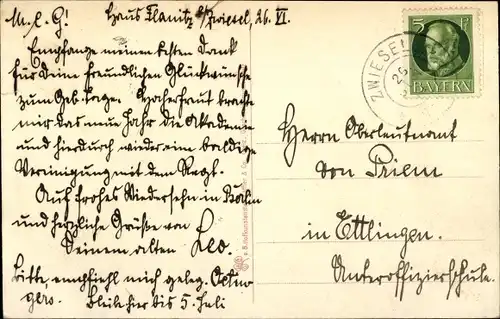 M. l. G! Haus Flanitz b/Zwiesel, 26. VI.
Empfange meinen besten Dank
für Deine freundlichen Glückwünsche
zum Geburtstage. Hocherfreut brachte
mir das neue Jahr die Akademie
und hierdurch wieder eine baldige
Vereinigung mit dem Regt.
Auf frohes Wiedersehn in
und herzliche Grüße von
Deinem alten Leo.
Bitte, empfiehl mich geleg.
Bleibe hier bis 5. Juli
5 Pf
BAYERN
ZWIESEL
26
Herrn Oberleutnant
von Priem
in Ettlingen.
Unteroffizierschule.